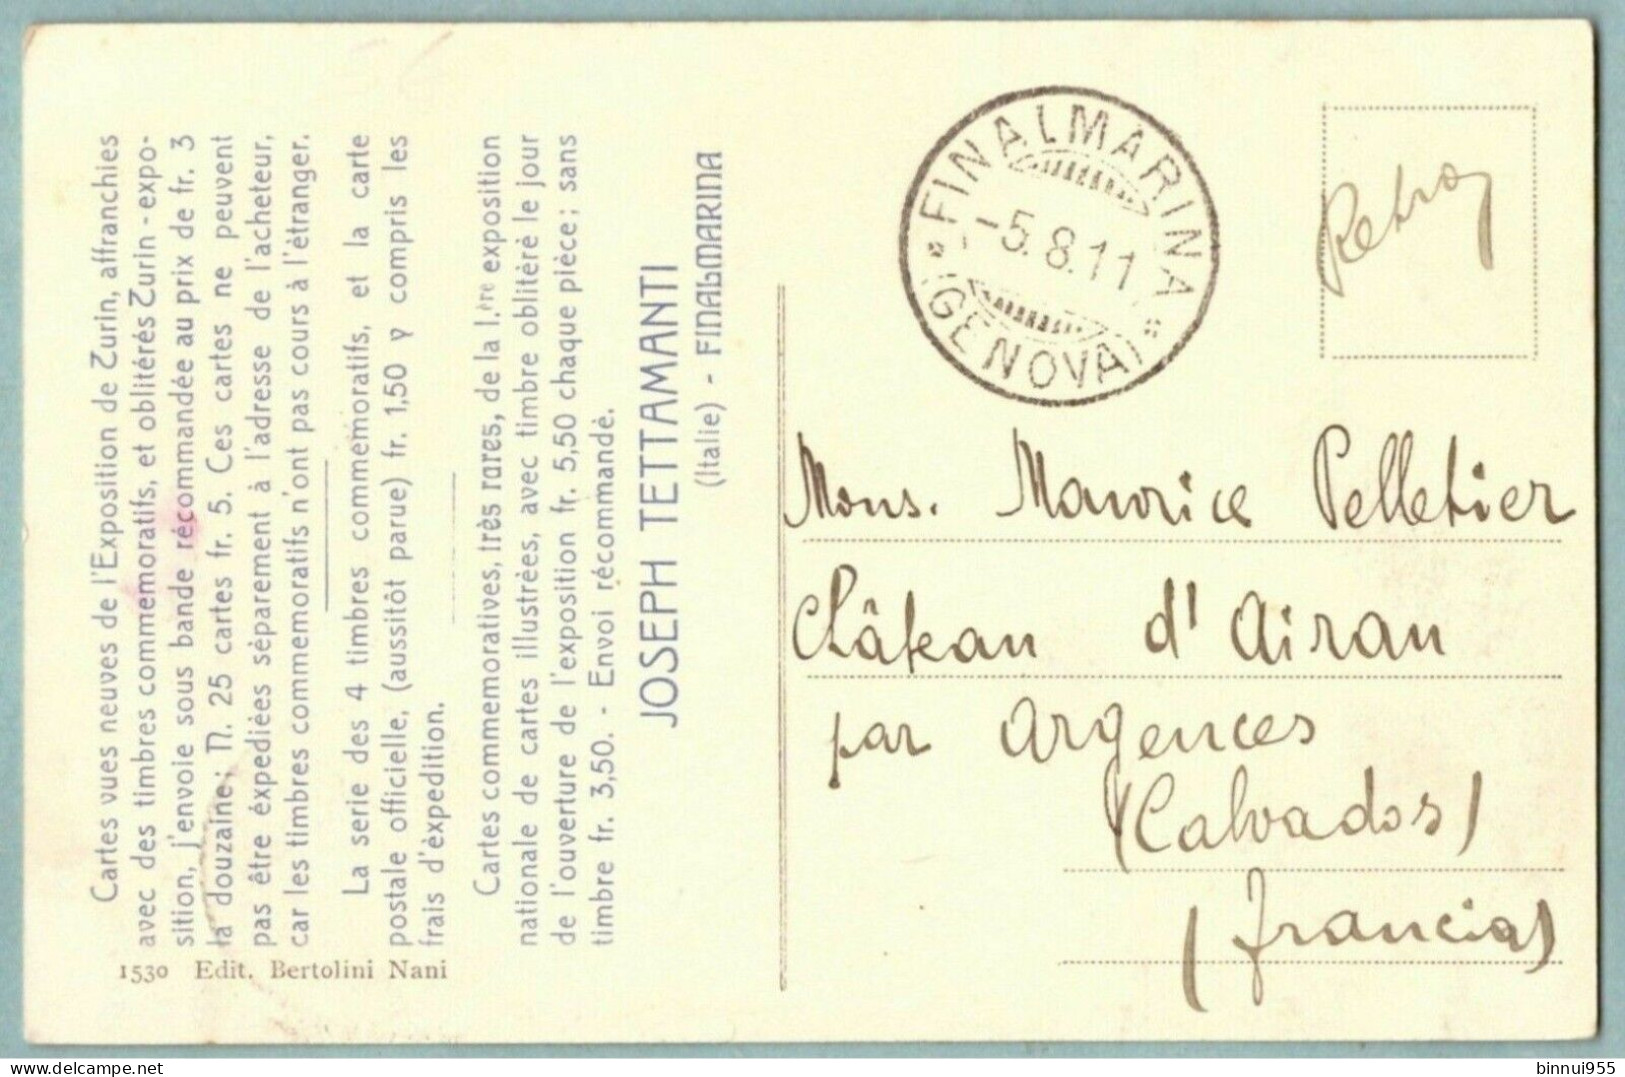 Cartes vues neuves de l'Exposition de Turin, affranchies
avec des timbres commemoratifs, et oblitérés Turin - expo-
sition, j'envoie sous bande récommandée au prix de fr. 3
la douzaine; N. 25 cartes fr. 5. Ces cartes ne peuvent
pas être éxpediées sèparement à l'adresse de l'acheteur,
car les timbres commemoratifs n'ont pas cours à l'ètranger.
La serie des 4 timbres commemoratifs, et la carte
postale officielle, (aussitôt parue) fr. 1,50 y compris les
frais d'éxpedition.
Cartes commemoratives, très rares, de la I.ère exposition
nationale de cartes illustrées, avec timbre oblitère le jour
de l'ouverture de l'exposition fr. 5,50 chaque pièce; sans
timbre fr. 3,50. - Envoi récommandé.
JOSEPH TETTAMANTI
(Italie) - FINALMARINA
1530 Edit. Bertolini Nani
* FINALMARINA *
-5.8.11
(GENOVA)
Mons. Maurice Pelletier
Château d'Airan
par Argences
(Calvados)
(Francia)
binnui955